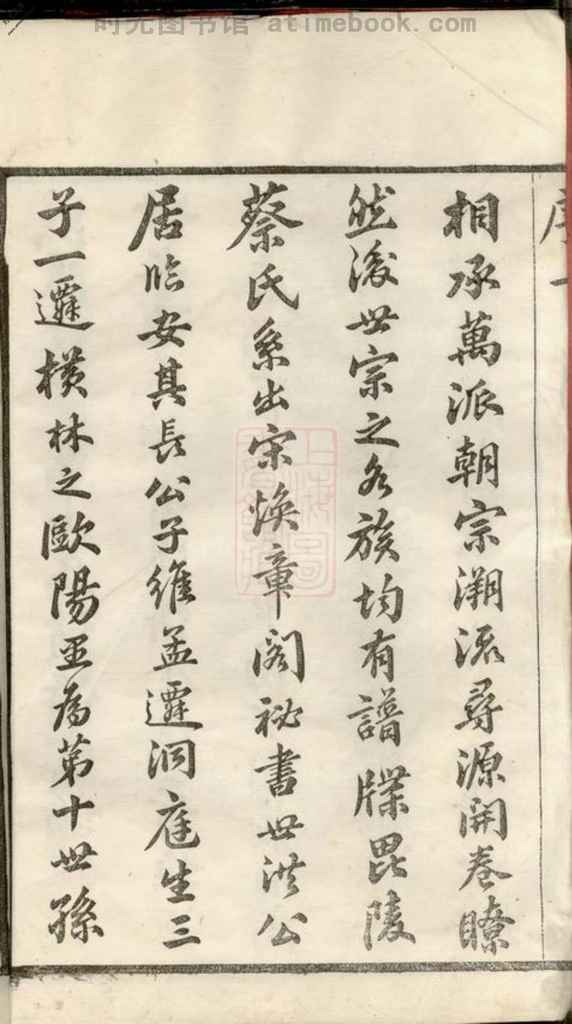 时光图书馆 atimebook.com
序一
相承萬派朝宗溯流尋源開卷瞭
然後世宗之各族均有譜牒毘陵
蔡氏系出宋煥章閣祕書世洪公
居臨安其長公子維孟遷洞庭生三
子一遷橫林之歐陽里為第十世孫